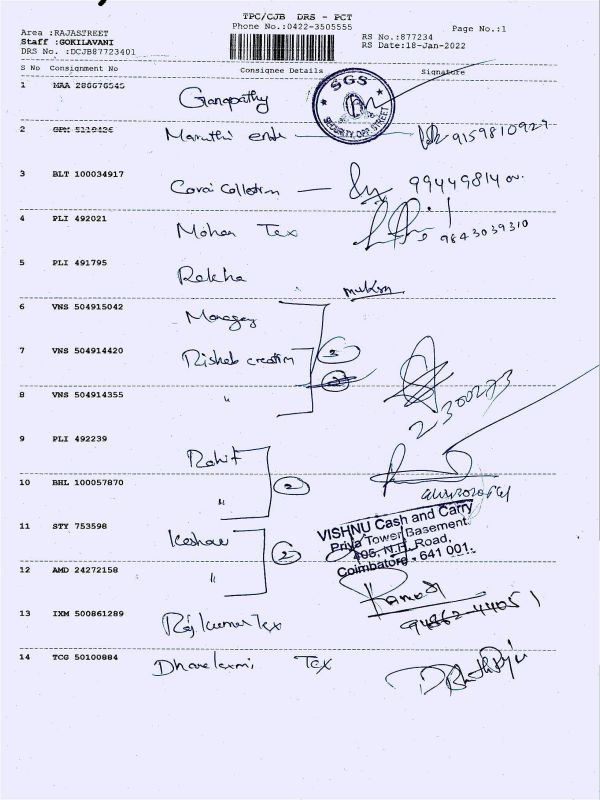 TPC/CJB DRS - PCT
Phone No.:0422-3505555
Page No.:1
Area :RAJASTREET
Staff :GOKILAVANI
DRS No. :DCJB87723401
RS No.:877234
RS Date:18-Jan-2022
S No Consignment No Consignee Details Signature
1 MAA 286676545 Ganapathy
SGS
SECURITY, OPP. STREET
2 Maruthi 9159810929
3 BLT 100034917 Covai Collection
4 PLI 492021 Mohan Tex 9843039310
5 PLI 491795 Rekha
6 VNS 504915042
7 VNS 504914420 Risheb creation 2
8 VNS 504914355 "
9 PLI 492239 Rohit
10 BHL 100057870 " 2
11 STY 753598 Keshav 2
VISHNU Cash and Carry
Priya Tower Basement.
N.H. Road,
Coimbatore - 641 001.
12 AMD 24272158 "
13 IXM 500861289 Rajkumar Tex
14 TCG 50100884 Dhanalaxmi Tex